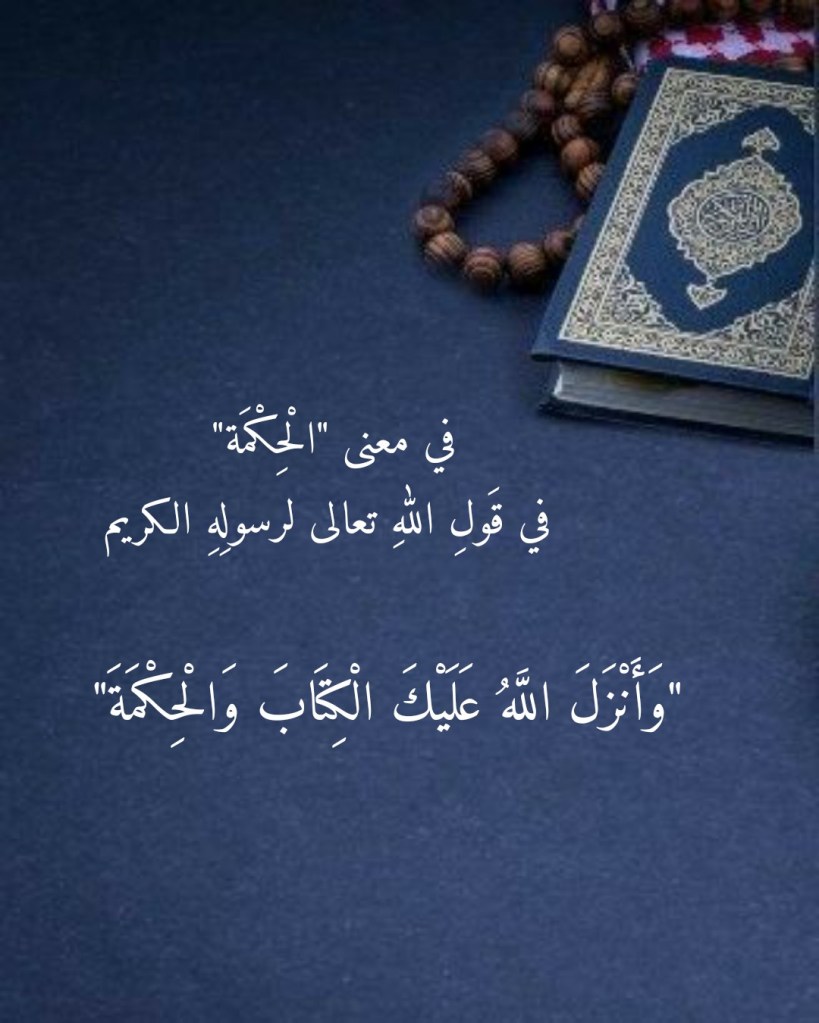 في معنى "الْحِكْمَة"
في قَولِ اللهِ تعالى لرسولِهِ الكريم
"وَأَنْزَلَ اللَّهُ عَلَيْكَ الْكِتَابَ وَالْحِكْمَةَ"